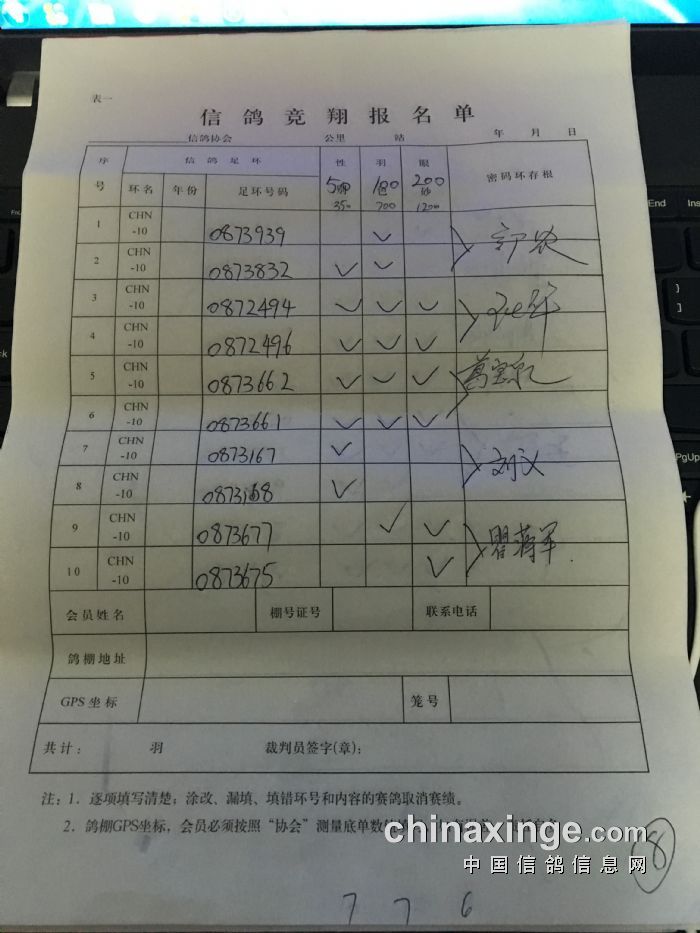 表一
信鸽竞翔报名单
信鸽协会 公里 站 年 月 日
序号 信鸽足环 性 羽 眼 密码环存根
环名 年份 足环号码 100 200
350 700 1200
1 CHN-10 0873939 ✓
2 CHN-10 0873832 ✓ ✓
3 CHN-10 0872494 ✓ ✓ ✓
4 CHN-10 0872496 ✓ ✓ ✓
5 CHN-10 0873662 ✓ ✓ ✓
6 CHN-10 0873661 ✓ ✓ ✓
7 CHN-10 0873167 ✓
8 CHN-10 0873168 ✓
9 CHN-10 0873677 ✓ ✓
10 CHN-10 0873675 ✓
会员姓名 棚号证号 联系电话
鸽棚地址
GPS坐标 笼号
共计: 羽 裁判员签字(章):
注:1. 逐项填写清楚;涂改、漏填、填错环号和内容的赛鸽取消赛绩。
2. 鸽棚GPS坐标,会员必须按照“协会”测量底单数
chinaxinge.com
中国信鸽信息网
8
7 7 6
End
PgUp